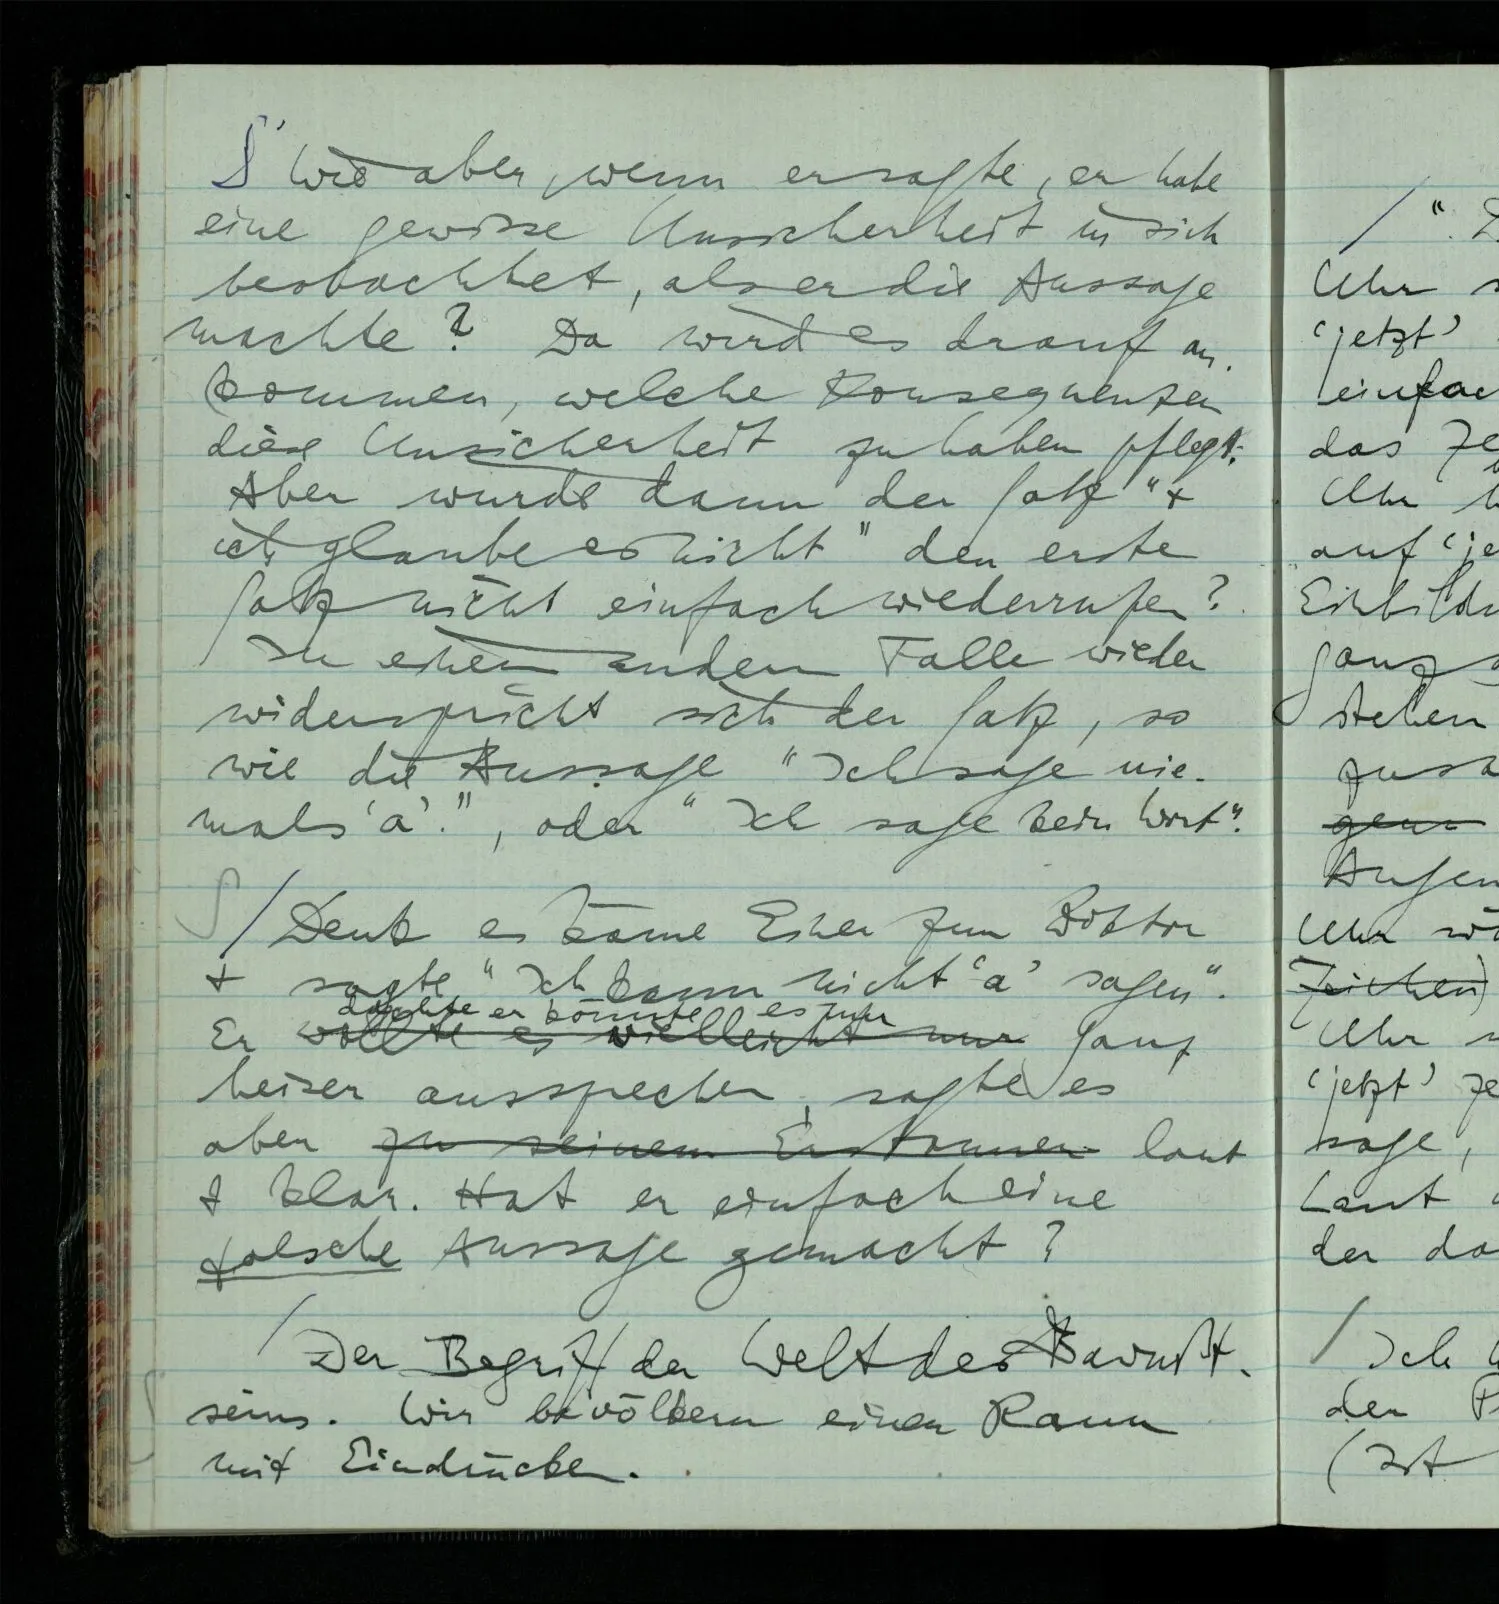 S' Wie aber, wenn er sagte, er habe
eine gewisse Unsicherheit in sich
beobachtet, als er die Aussage
machte? Da wird es drauf an-
kommen, welche Konsequenzen
diese Unsicherheit zu haben pflegt.
Aber wurde dann der Satz "+
ich glaube es nicht" den erste
Satz nicht einfach wiederrufen?
In einem andern Falle wieder
widerspricht sich der Satz, so
wie die Aussage "Ich sage nie-
mals 'a'.", oder "Ich sage kein Wort".
S / Denk es käme Einer zum Doktor
+ sagte "Ich kann nicht 'a' sagen".
dachte er könnte es nur
Er wollte es vielleicht nur ganz
heiser aussprechen, sagte es
aber zu seinem Erstaunen laut
+ klar. Hat er einfach eine
falsche Aussage gemacht?
/ Der Begriff der Welt des Bewußt-
seins. Wir bevölkern einen Raum
mit Eindrücken.
/ "
Uhr
'jetzt'
einfac
das Ze
Uhr
auf 'je
Einbildu
ganz
stehen
zusa
gem
Augen
Uhr wä
Zeichen)
Uhr
'jetzt' ze
sage,
Laut
der da
/ Ich
der P
(Ist